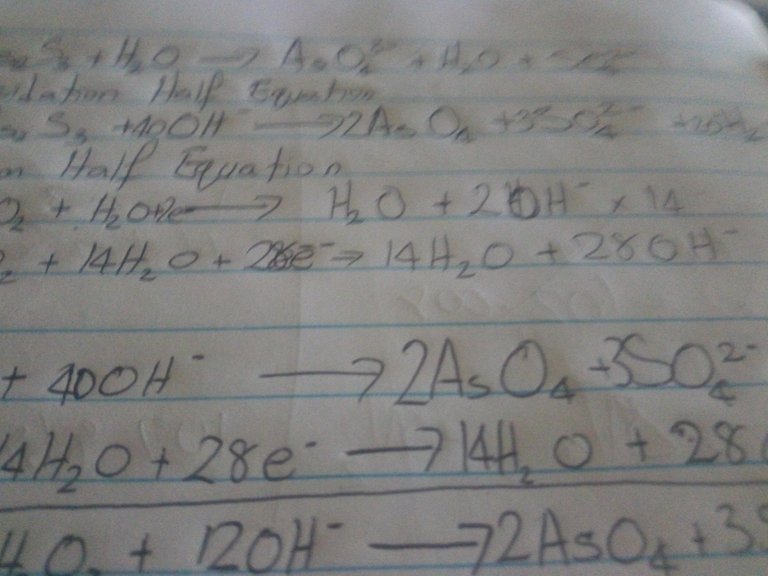 S₃ + H₂O → AsO₄³⁻ + H₂O +
idation Half Equation
S₃ + 40OH⁻ → 2AsO₄ + 3SO₄²⁻
on Half Equation
O₂ + H₂O + 2e⁻ → H₂O + 2OH⁻ × 14
₂ + 14H₂O + 28e⁻ → 14H₂O + 28OH⁻
+ 40OH⁻ → 2AsO₄ + 3SO₄²⁻
14H₂O + 28e⁻ → 14H₂O + 28
4O₂ + 12OH⁻ → 2AsO₄ + 3S